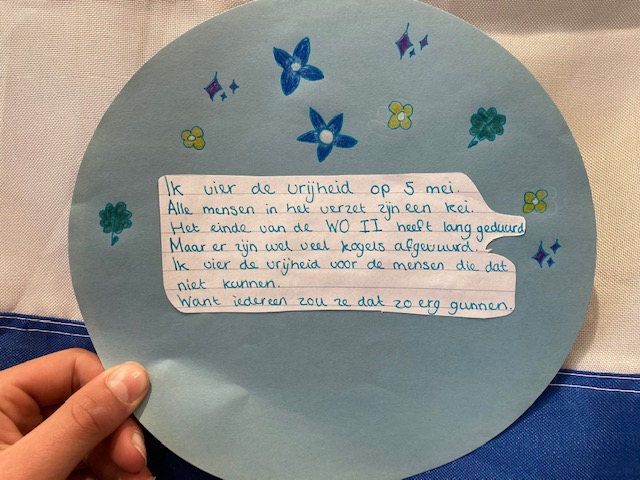 Ik vier de vrijheid op 5 mei.
Alle mensen in het verzet zijn een kei.
Het einde van de WO II heeft lang geduurd
Maar er zijn wel veel kogels afgevuurd.
Ik vier de vrijheid voor de mensen die dat
niet kunnen.
Want iedereen zou ze dat zo erg gunnen.